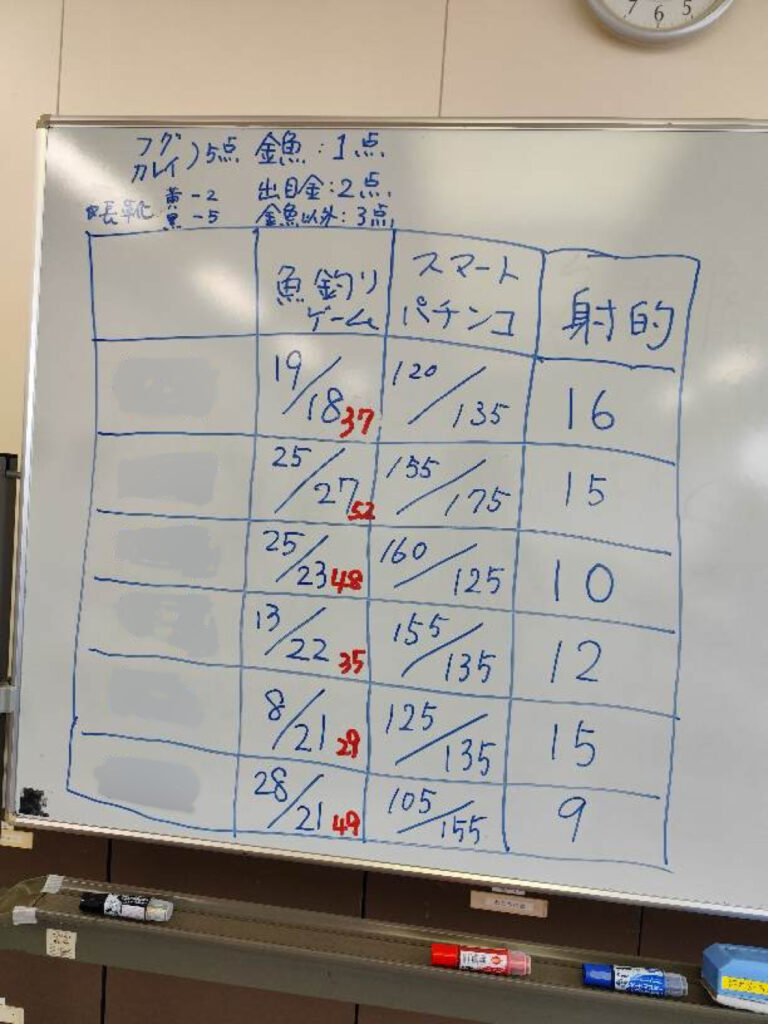 7 6 5
フグ
カレイ)5点 金魚:1点
黄-2 出目金:2点
黒-5 金魚以外:3点
魚釣り
ゲーム
スマート
パチンコ
射的
19/18 37 120/135 16
25/27 52 155/175 15
25/23 48 160/125 10
13/22 35 155/135 12
8/21 29 125/135 15
28/21 49 105/155 9